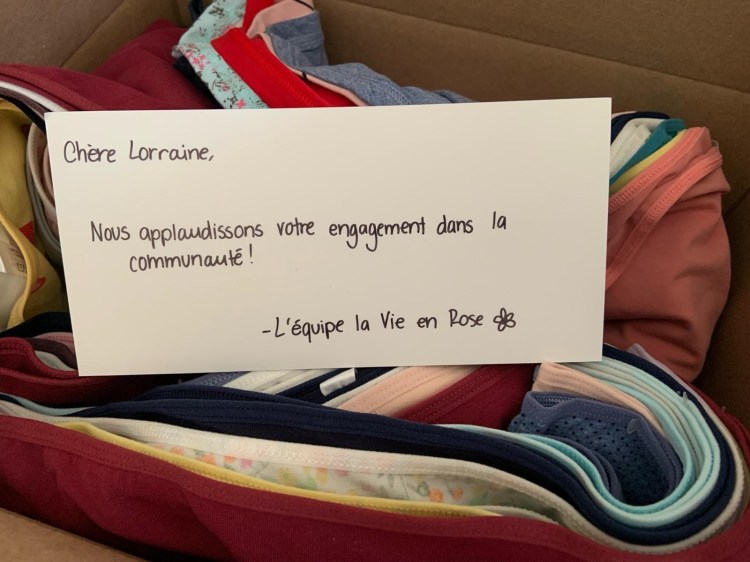 Chère Lorraine,
Nous applaudissons votre engagement dans la
communauté !
-L'équipe la Vie en Rose